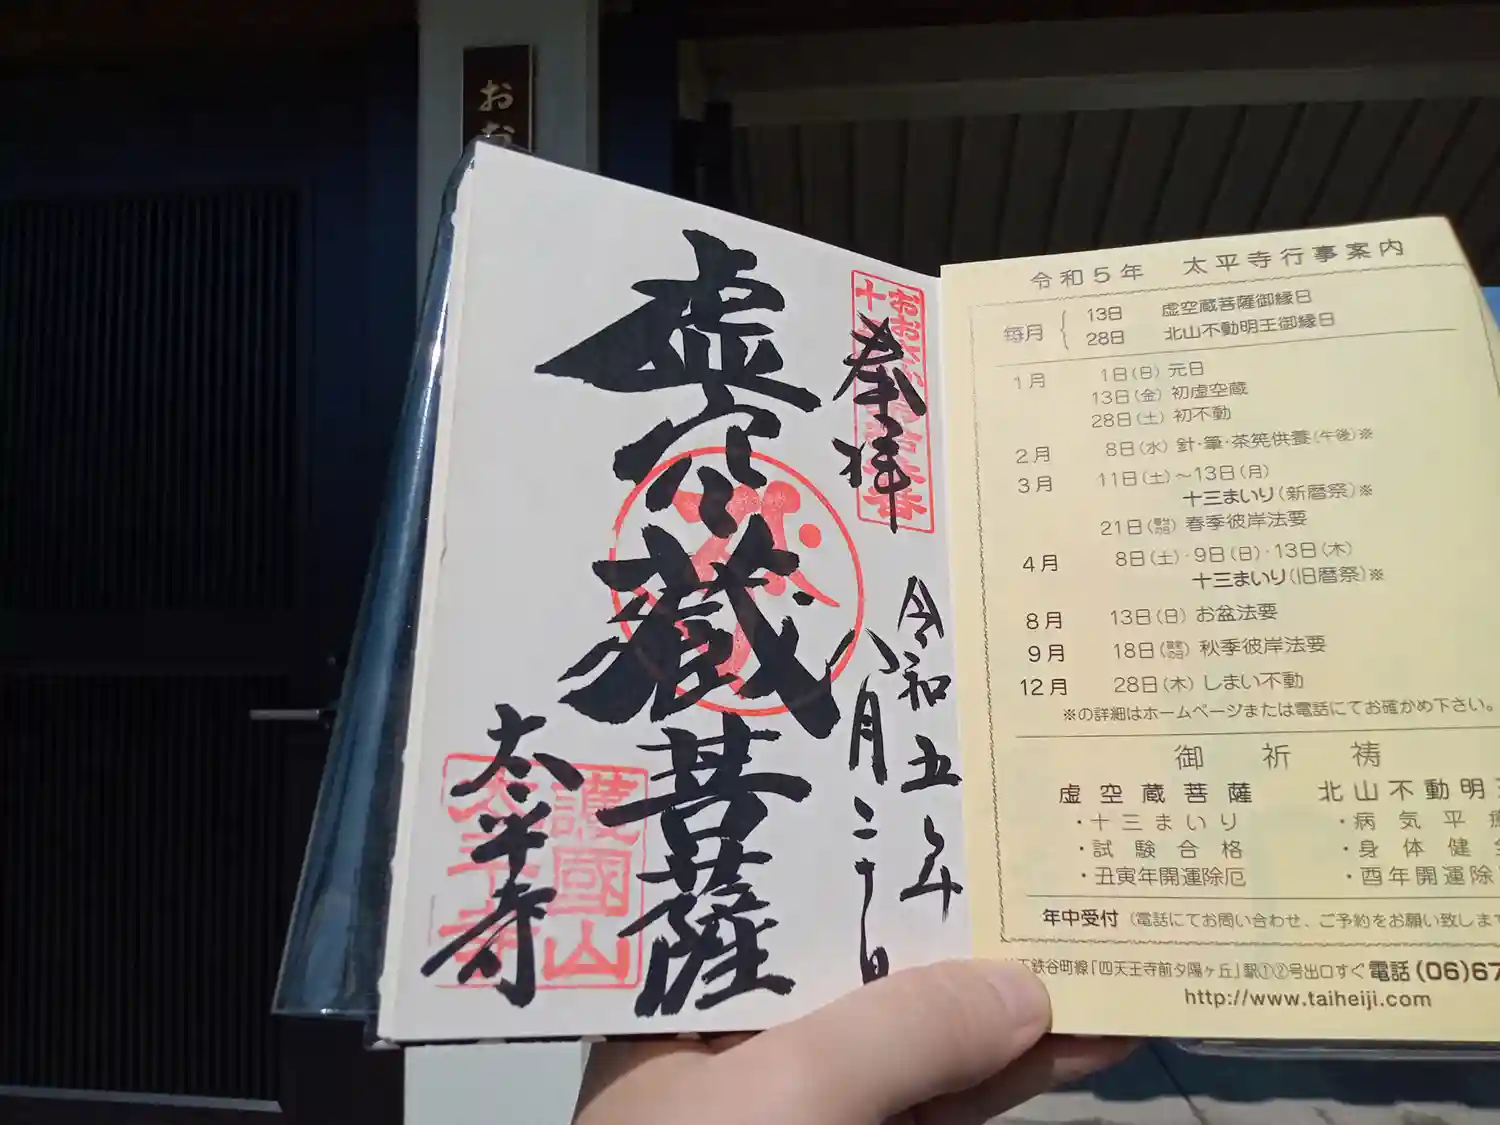 おお
奉拝
令和五年
八月二十日
虚空蔵菩薩
太平寺
護國山
太平寺
令和5年 太平寺行事案内
毎月 13日 虚空蔵菩薩御縁日
28日 北山不動明王御縁日
1月 1日(日) 元日
13日(金) 初虚空蔵
28日(土) 初不動
2月 8日(水) 針・筆・茶筅供養(午後)※
3月 11日(土)~13日(月)
十三まいり(新暦祭)※
21日(祝) 春季彼岸法要
4月 8日(土)・9日(日)・13日(木)
十三まいり(旧暦祭)※
8月 13日(日) お盆法要
9月 18日 秋季彼岸法要
12月 28日(木) しまい不動
※の詳細はホームページまたは電話にてお確かめ下さい。
御祈祷
虚空蔵菩薩
・十三まいり
・試験合格
・丑寅年開運除厄
北山不動明
・病気平
・身体健
・酉年開運除
年中受付(電話にてお問い合わせ、ご予約をお願い致しま
下鉄谷町線「四天王寺前夕陽ヶ丘」駅①②号出口すぐ 電話(06)67
http://www.taiheiji.com